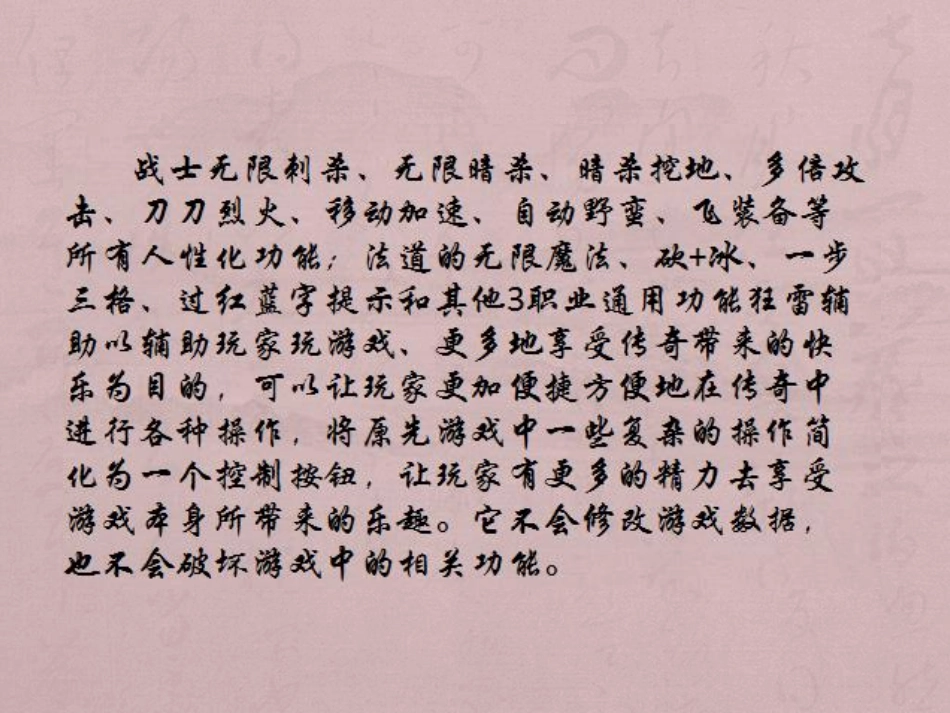 战士无限刺杀、无限暗杀、暗杀挖地、多倍攻
击、刀刀烈火、移动加速、自动野蛮、飞装备等
所有人性化功能；法道的无限魔法、砍+冰、一步
三格、过红蓝字提示和其他3职业通用功能狂雷辅
助以辅助玩家玩游戏、更多地享受传奇带来的快
乐为目的，可以让玩家更加便捷方便地在传奇中
进行各种操作，将原先游戏中一些复杂的操作简
化为一个控制按钮，让玩家有更多的精力去享受
游戏本身所带来的乐趣。它不会修改游戏数据，
也不会破坏游戏中的相关功能。